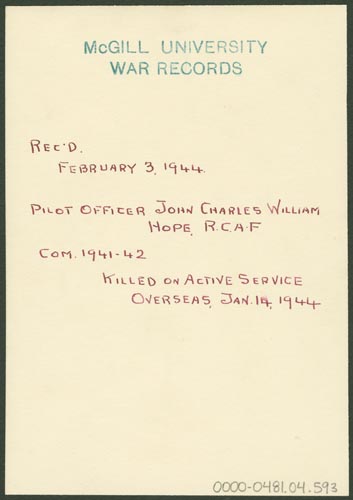 McGILL UNIVERSITY
WAR RECORDS
REC'D.
FEBRUARY 3, 1944.
PILOT OFFICER JOHN CHARLES WILLIAM
HOPE, R.C.A.F
COM. 1941-42
KILLED ON ACTIVE SERVICE
OVERSEAS, JAN. 14, 1944
0000-0481.04.593